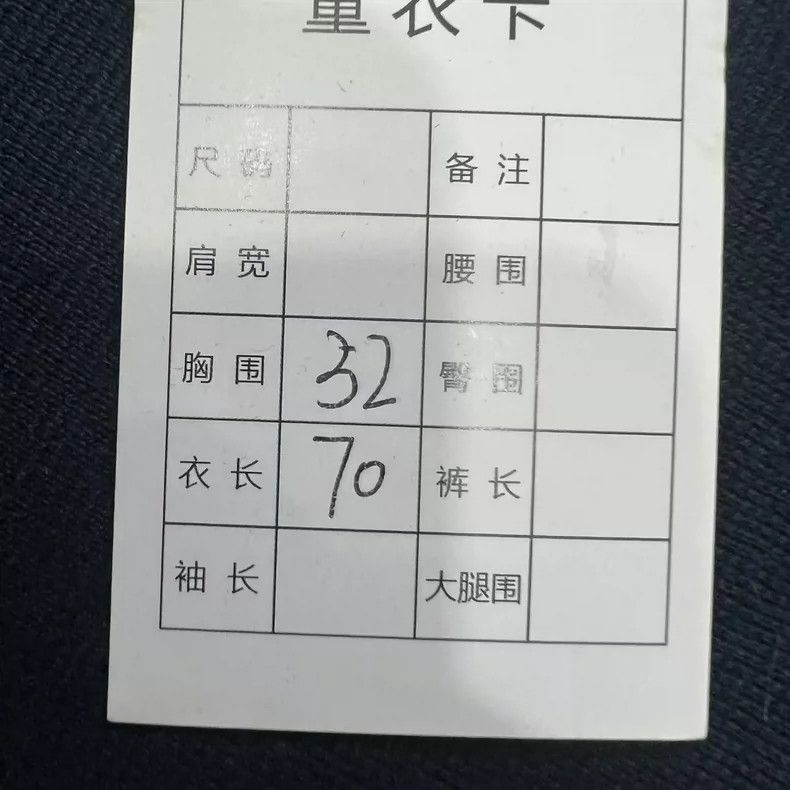 量衣卡
尺码 备注
肩宽 腰围
胸围 32 臀围
衣长 70 裤长
袖长 大腿围